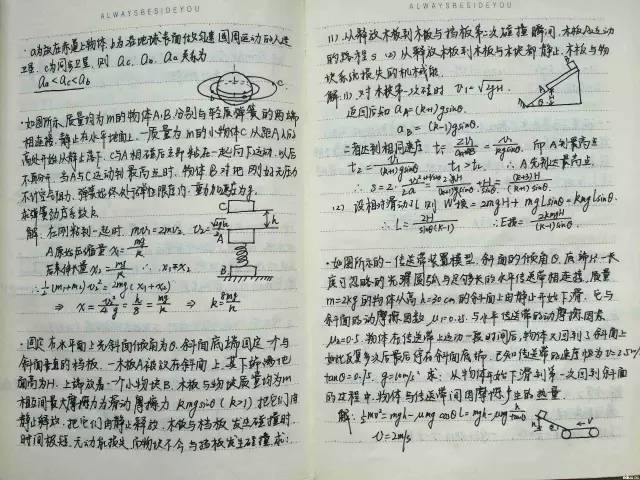 ALWAYSBESIDEYOU
·a为放在赤道上物体,b为在地球表面附近匀速圆周运动的人造
卫星,c为同步卫星,则 ac, ab, aa 关系为
aa<ac<ab
·如图所示,质量均为m的物体A、B分别与轻质弹簧的两端
相连接,静止在水平地面上,一质量为m的小物体C从距A入h
高处开始从静止落下,C与A相碰后立即粘在一起向下运动,以后
不再分开,当A与C运动到最高点时,物体B对地刚好无压力
不计空气阻力,弹簧始终处于弹性限度内,重力加速度为g
求弹簧劲度系数k.
解:在刚粘到一起时 mv1=2mv2, v2=√2gh/2
A原始压缩量 x1=mg/k
后来伸长量 x2=mg/k ∴x1=x2
∴½(m1+m2)v2²=2mg(x1+x2)
⇒ x=v2²/4g=h/8=mg/k ⇒ k=8mg/h
C
h
A
B
·固定在水平面上光斜面倾角为θ,斜面底端固定一个与
斜面垂直的挡板,一木板A被放在斜面上,其下端离地
面高为H,上端放着一个小物块B,木板与物块质量均为m
相互间最大摩擦力为滑动摩擦力 kmgsinθ (k>1) 把它们由
静止释放,把它们由静止释放,木板与挡板发生碰撞时,
时间极短,无动能损失,而物块不会与挡板发生碰撞,求:
ALWAYSBESIDEYOU
(1)从释放木板到木板与挡板第二次碰撞瞬间,木板A运动
的路程s (2)从释放木板到木板与木块都静止,木板与物
块系统损失的机械能
解:(1)对木板第一次碰时 v1=√2gH
返回后知 aA=(k+1)gsinθ
aB=(k-1)gsinθ
∴A先到达最高点
(2)设相对滑动L 则 W损=2mgH+mgLsinθ=kmgLsinθ
∴L=2H/sinθ(k-1) ∴E损=2kmgH/(k-1)
·如图所示的一传送带装置模型,斜面的倾角θ,底端H一长
度可忽略的光滑圆弧与足够长的水平传送带相连接,质量
m=2kg的物体从高h=30cm的斜面上由静止开始下滑,它与
斜面的动摩擦因数 μ1=0.25,与水平传送带的动摩擦因素
μ2=0.5,物体在传送带上运动一段时间后,物体又回到了斜面上
如此反复多次后最后停在斜面底端,已知传送带的速度恒为v=2.5m/s
tanθ=0.75, g=10m/s² 求:从物体开始下滑到第一次回到斜面
的过程中,物体与传送带间因摩擦产生的热量
解:½mv²=mgh-μmgcosθL=mgh-μmg h/tanθ
v=2m/s